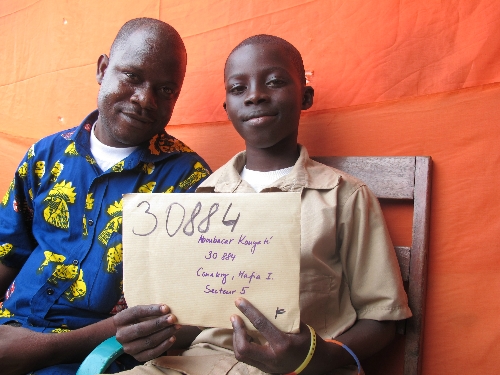 30884
Aboubacar
30 884
Conakry, Mafia I.
Secteur 5